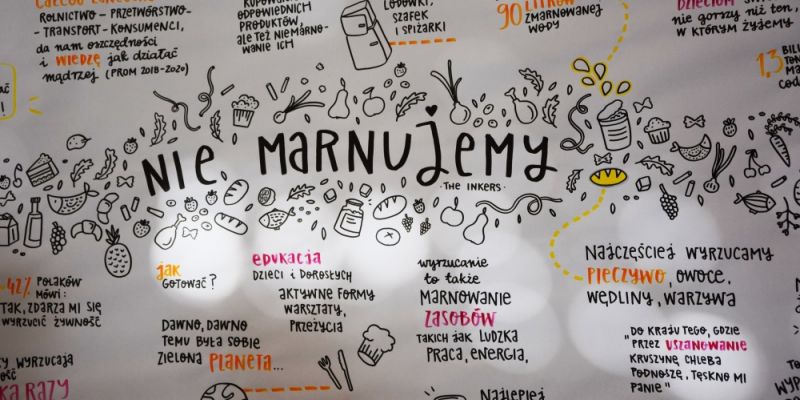 ROLNICTWO - PRZETWÓRSTWO -
- TRANSPORT - KONSUMENCI,
da nam oszczędności
i WIEDZĘ jak działać
mądrzej (PROM 2018-2020)
ODPOWIEDNICH
PRODUKTÓW,
ALE TEŻ NIEMARNO-
WANIE ICH
LODÓWKI,
SZAFEK
I SPIŻARKI
90 LITRÓW
ZMARNOWANEJ
WODY
DZIECIOM
nie gorszy niż ten,
w którym żyjemy
1,3
NIE MARNUJEMY
· THE INKERS ·
42% POLAKÓW
MÓWI:
TAK, ZDARZA MI SIĘ
WYRZUCIĆ ŻYWNOŚĆ
WYRZUCAJĄ
RAZY
jak
GOTOWAĆ?
DAWNO, DAWNO
TEMU BYŁA SOBIE
ZIELONA PLANETA...
EDUKACJA
DZIECI i DOROSŁYCH
AKTYWNE FORMY
WARSZTATY,
PRZEŻYCIA
wyrzucanie
to także
MARNOWANIE
ZASOBÓW
TAKICH JAK LUDZKA
PRACA, ENERGIA,
NAJLEPIEJ
NAJCZĘŚCIEJ WYRZUCAMY
PIECZYWO, OWOCE,
WĘDLINY, WARZYWA
DO KRAJU TEGO, GDZIE
"PRZEZ USZANOWANIE
KRUSZYNĘ CHLEBA
PODNOSZĘ, TĘSKNO MI
PANIE"